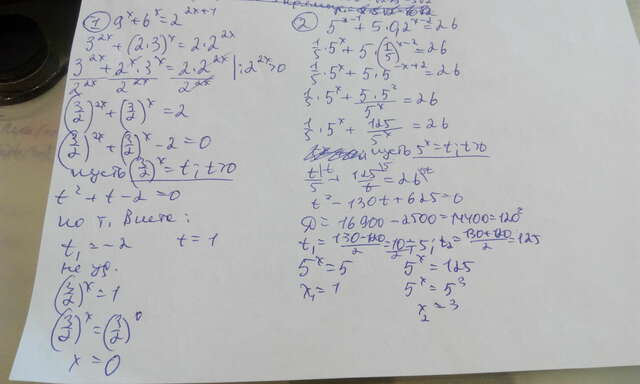 ① 9^x+6^x=2^{2x+1}
3^{2x}+(2·3)^x=2·2^{2x}
3^{2x}/2^{2x} + 2^x·3^x/2^{2x} = 2·2^{2x}/2^{2x} |:2^{2x}>0
(3/2)^{2x}+(3/2)^x=2
(3/2)^{2x}+(3/2)^x-2=0
пусть (3/2)^x=t; t>0
t²+t-2=0
по т. Виета:
t₁=-2 t=1
не уд.
(3/2)^x=1
(3/2)^x=(3/2)^0
x=0
② 5^{x-1}+5·0,2^{x-2}=26
1/5·5^x+5·(1/5)^{x-2}=26
1/5·5^x+5·5^{-x+2}=26
1/5·5^x+5·5²/5^x=26
1/5·5^x+125/5^x=26
пусть 5^x=t; t>0
t/5+125/t=26
t²-130t+625=0
D=16900-2500=14400=120²
t₁=130-120/2=10/2=5; t₂=130+120/2=125
5^x=5 5^x=125
x₁=1 5^x=5³
x₂=3